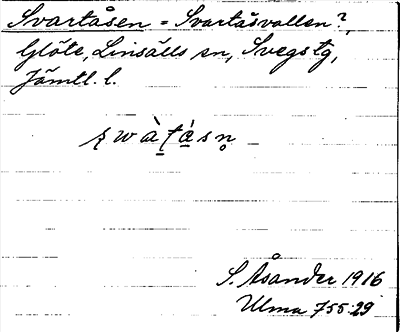 Svartåsen = Svartåsvallen?,
Glöte, Linsälls sn, Svegs tg,
Jämtl. l.
S. Åsander 1916
Ulma 755:29